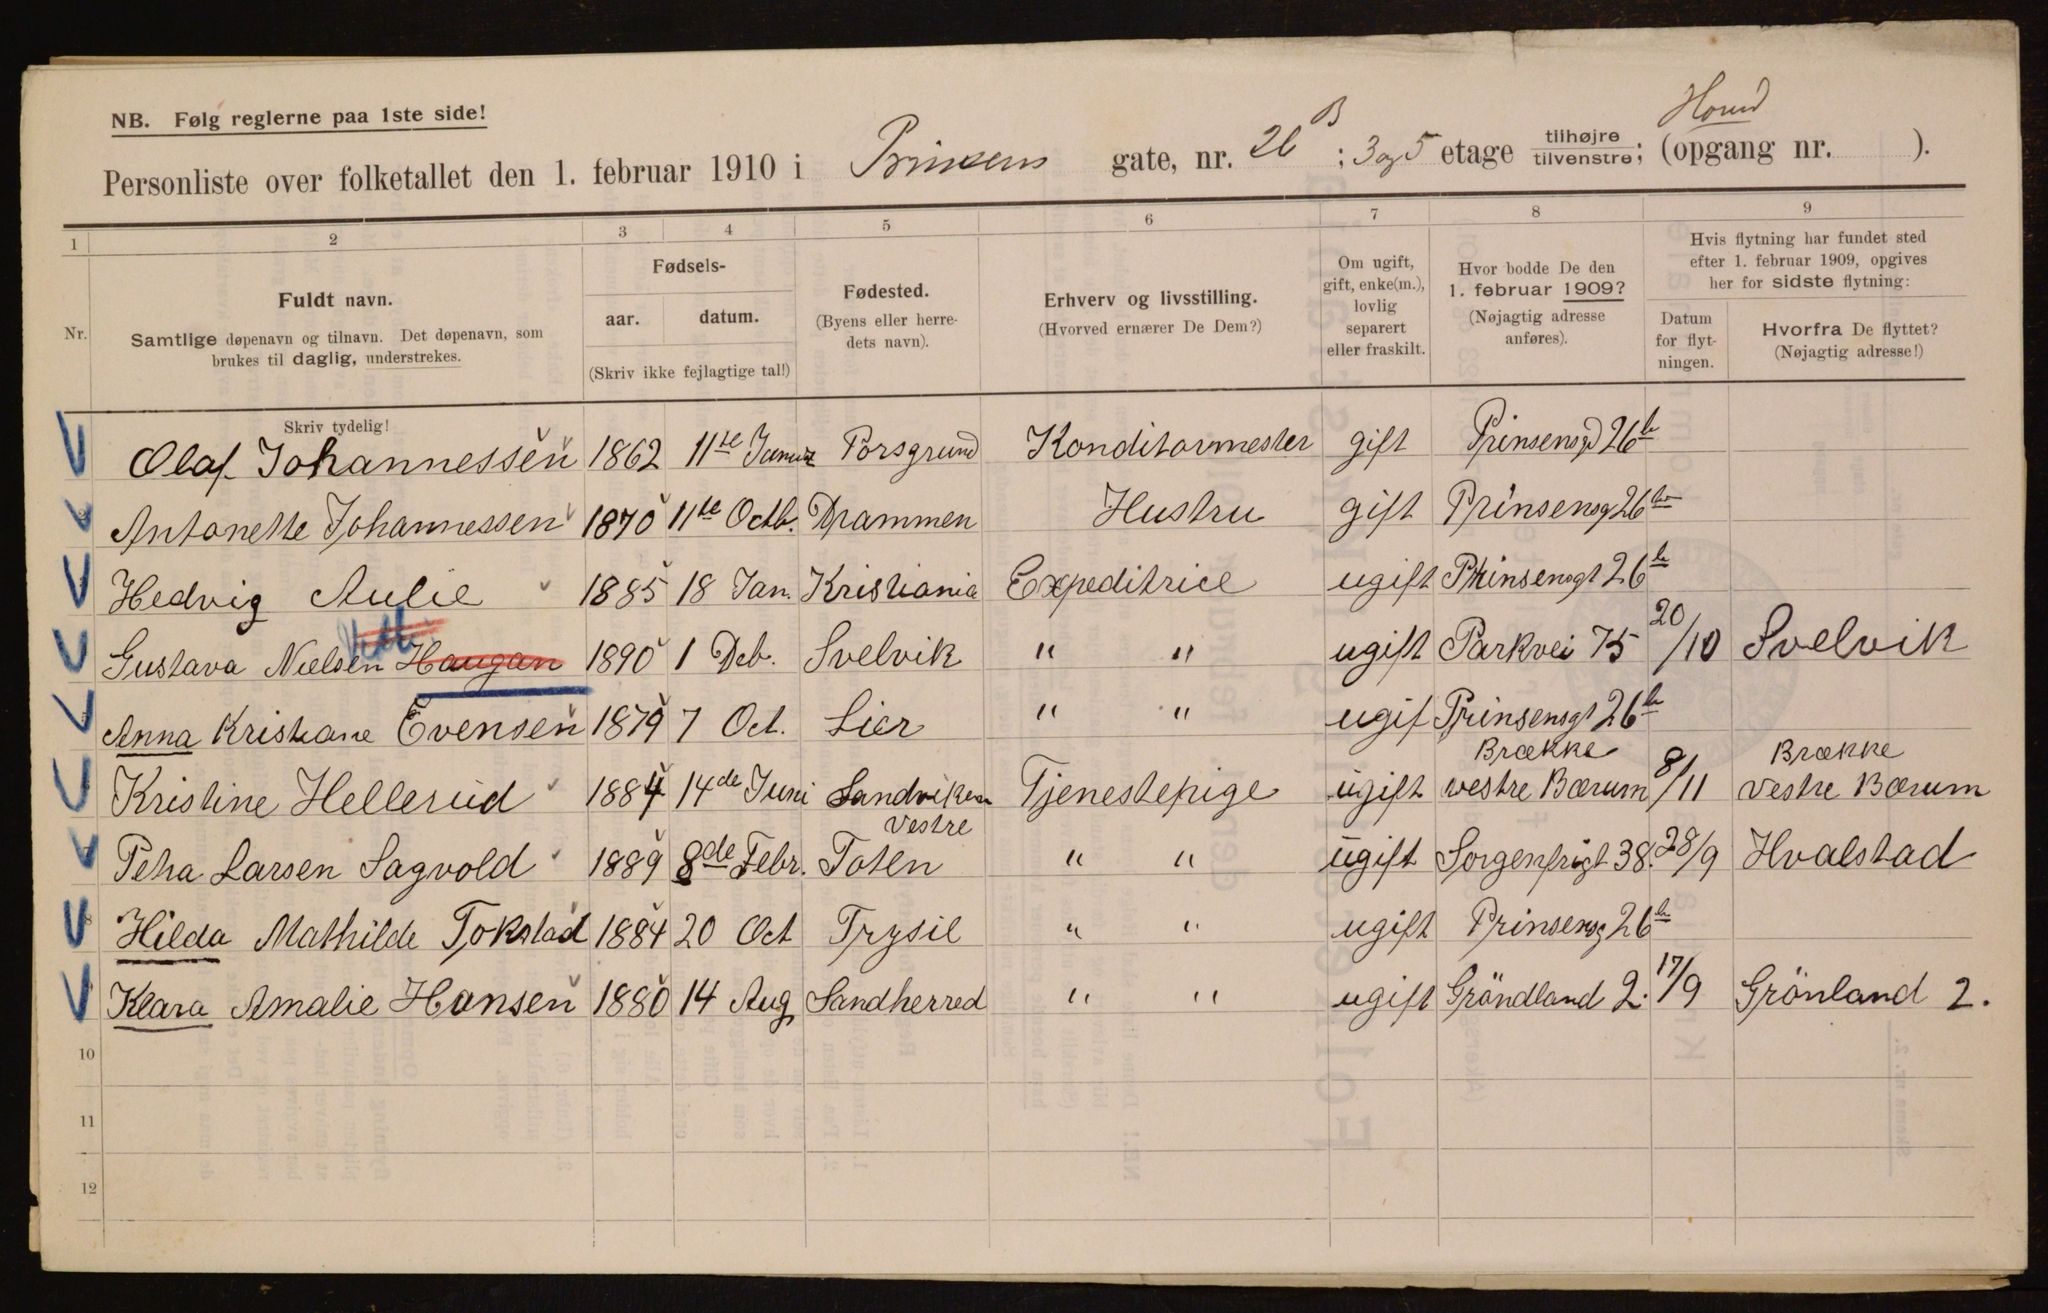 NB. Følg reglerne paa 1ste side!
Personliste over folketallet den 1. februar 1910 i Prinsens gate, nr. 26 B ; 3 og 5 etage tilhøjre / tilvenstre; (opgang nr. ).
1 2 3 4 5 6 7 8 9
Nr.
Fuldt navn.
Samtlige døpenavn og tilnavn. Det døpenavn, som
brukes til daglig, understrekes.
Fødsels-
aar. datum.
(Skriv ikke fejlagtige tal!)
Fødested.
(Byens eller herre-
dets navn).
Erhverv og livsstilling.
(Hvorved ernærer De Dem?)
Om ugift,
gift, enke(m.),
lovlig
separert
eller fraskilt.
Hvor bodde De den
1. februar 1909?
(Nøjagtig adresse
anføres).
Hvis flytning har fundet sted
efter 1. februar 1909, opgives
her for sidste flytning:
Datum
for flyt-
ningen.
Hvorfra De flyttet?
(Nøjagtig adresse!)
Skriv tydelig!
Olaf Johannessen 1862 11te Januar Porsgrund Konditormester gift Prinsensgd 26b
Antonette Johannessen 1870 11te Octb. Drammen Hustru gift Prinsensg 26b
Hedvig Aulie 1885 18 Jan. Kristiania Expeditrice ugift Prinsensgt 26b
Gustava Nielsen Haugan 1890 1 Deb. Svelvik " " ugift Parkvei 75 20/10 Svelvik
Anna Kristiane Evensen 1879 7 Oct. Lier " " ugif Prinsensgt 26b
Kristine Hellerud 1884 14de Juni Sandviken Tjenestepige ugift Brække vestre Bærum 8/11 Brække Vestre Bærum
Petra Larsen Sagvold 1889 8de Febr. Vestre Toten " " ugift Sorgenfrigt 38. 28/9 Hvalstad
8 Hilda Mathilde Tokstad 1884 20 Oct Trysil " " ugift Prinsensg 26b
Klara Amalie Hansen 1880 14 Aug Sandherred " " ugift Gröndland 2. 17/9 Grönland 2.
10
11
12